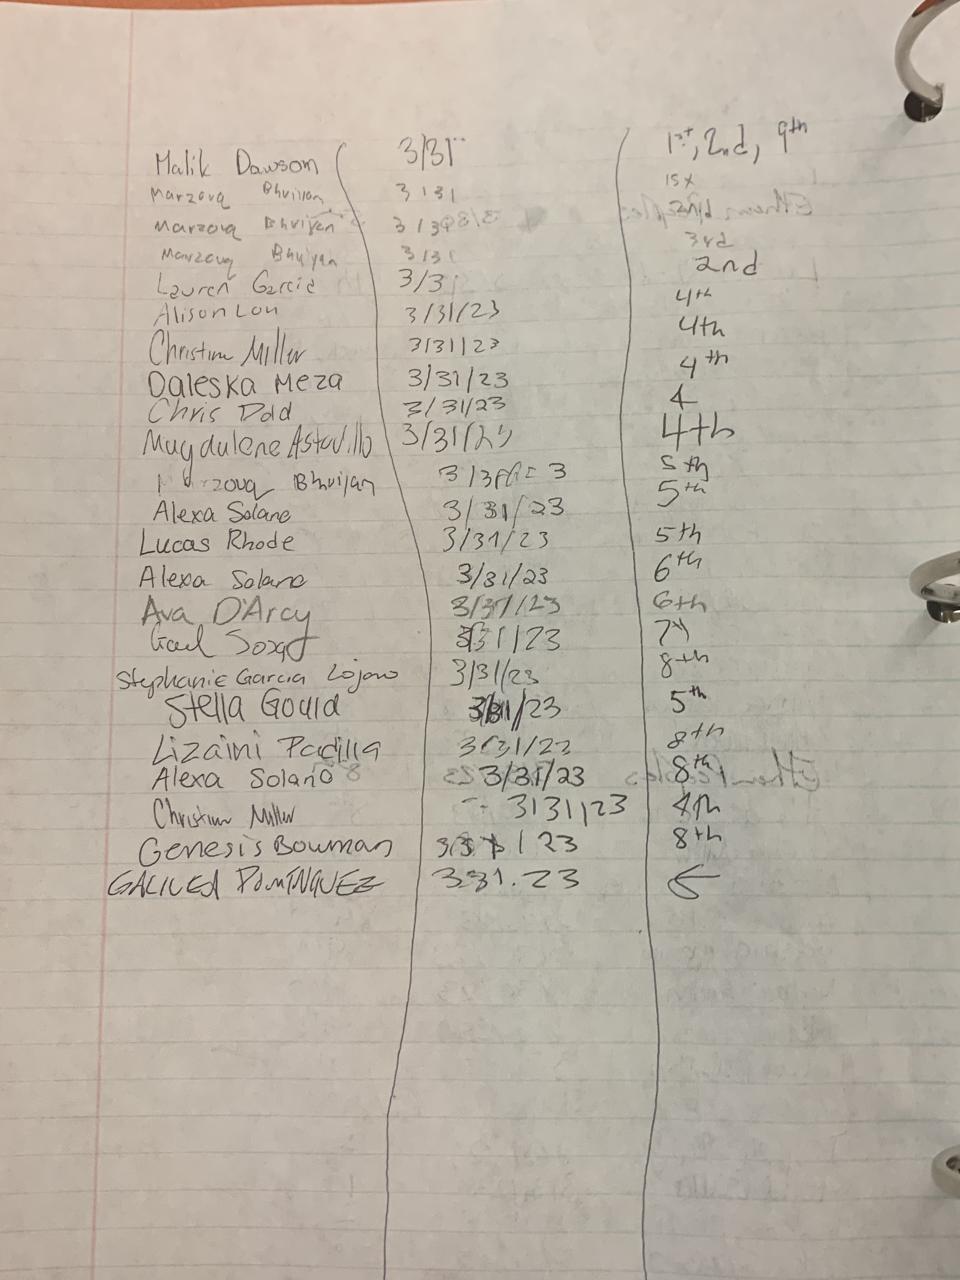 Malik Dawson 3/31 1st, 2nd, 9th
Marzouq Bhuiyan 3/31 1st
Marzouq Bhuiyan 3/3 2nd
Marzouq Bhuiyan 3/31 3rd
Lauren Garcia 3/3 2nd
Alison Lou 3/31/23 4th
Christian Miller 3/31/23 4th
Daleska Meza 3/31/23 4th
Chris Dold 3/31/23 4
Magdalene Astudillo 3/31/23 4th
Marzouq Bhuiyan 5th
Alexa Solano 3/31/23 5th
Lucas Rhode 3/31/23 5th
Alexa Solano 3/31/23 6th
Ava D'Arcy 3/31/23 6th
Gael 3/31/23 7th
Stephanie Garcia Lojano 3/31/23 8th
Stella Gould 3/31/23 5th
Lizaini Padilla 3/31/23 8th
Alexa Solano 3/31/23 8th
Christian Miller 3/31/23 4th
Genesis Bowman 3/31/23 8th
GALILEA DOMINGUEZ 3.31.23